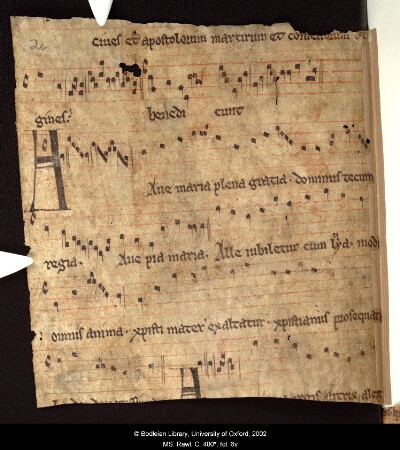 2e
ciues et apostolorum martirum et
gines. benedi cunt
Aue maria plena gratia. dominus tecum
regia. Aue pia maria. Alle iubiletur cum
omnis anima. xpisti mater exaltatur. xpistianus prosequat
© Bodleian Library, University of Oxford, 2002
MS. Rawl. C. 400*, fol. 6v